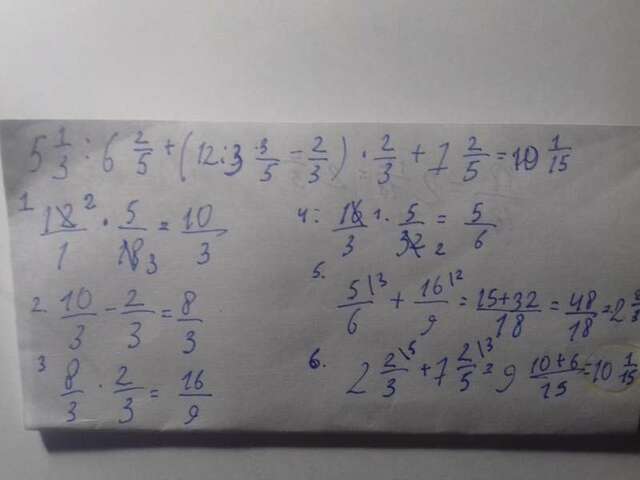 5 1/3 : 6 2/5 + (12 : 3 3/5 - 2/3) · 2/3 + 7 2/5 = 10 1/15
1 12/1 · 5/18 = 10/3
2 10/3 - 2/3 = 8/3
3 8/3 · 2/3 = 16/9
4: 16/3 · 5/32 = 5/6
5. 5/6 + 16/9 = 15+32/18 = 48/18 = 2 2/3
6. 2 2/3 + 7 2/5 = 9 10+6/15 = 10 1/15